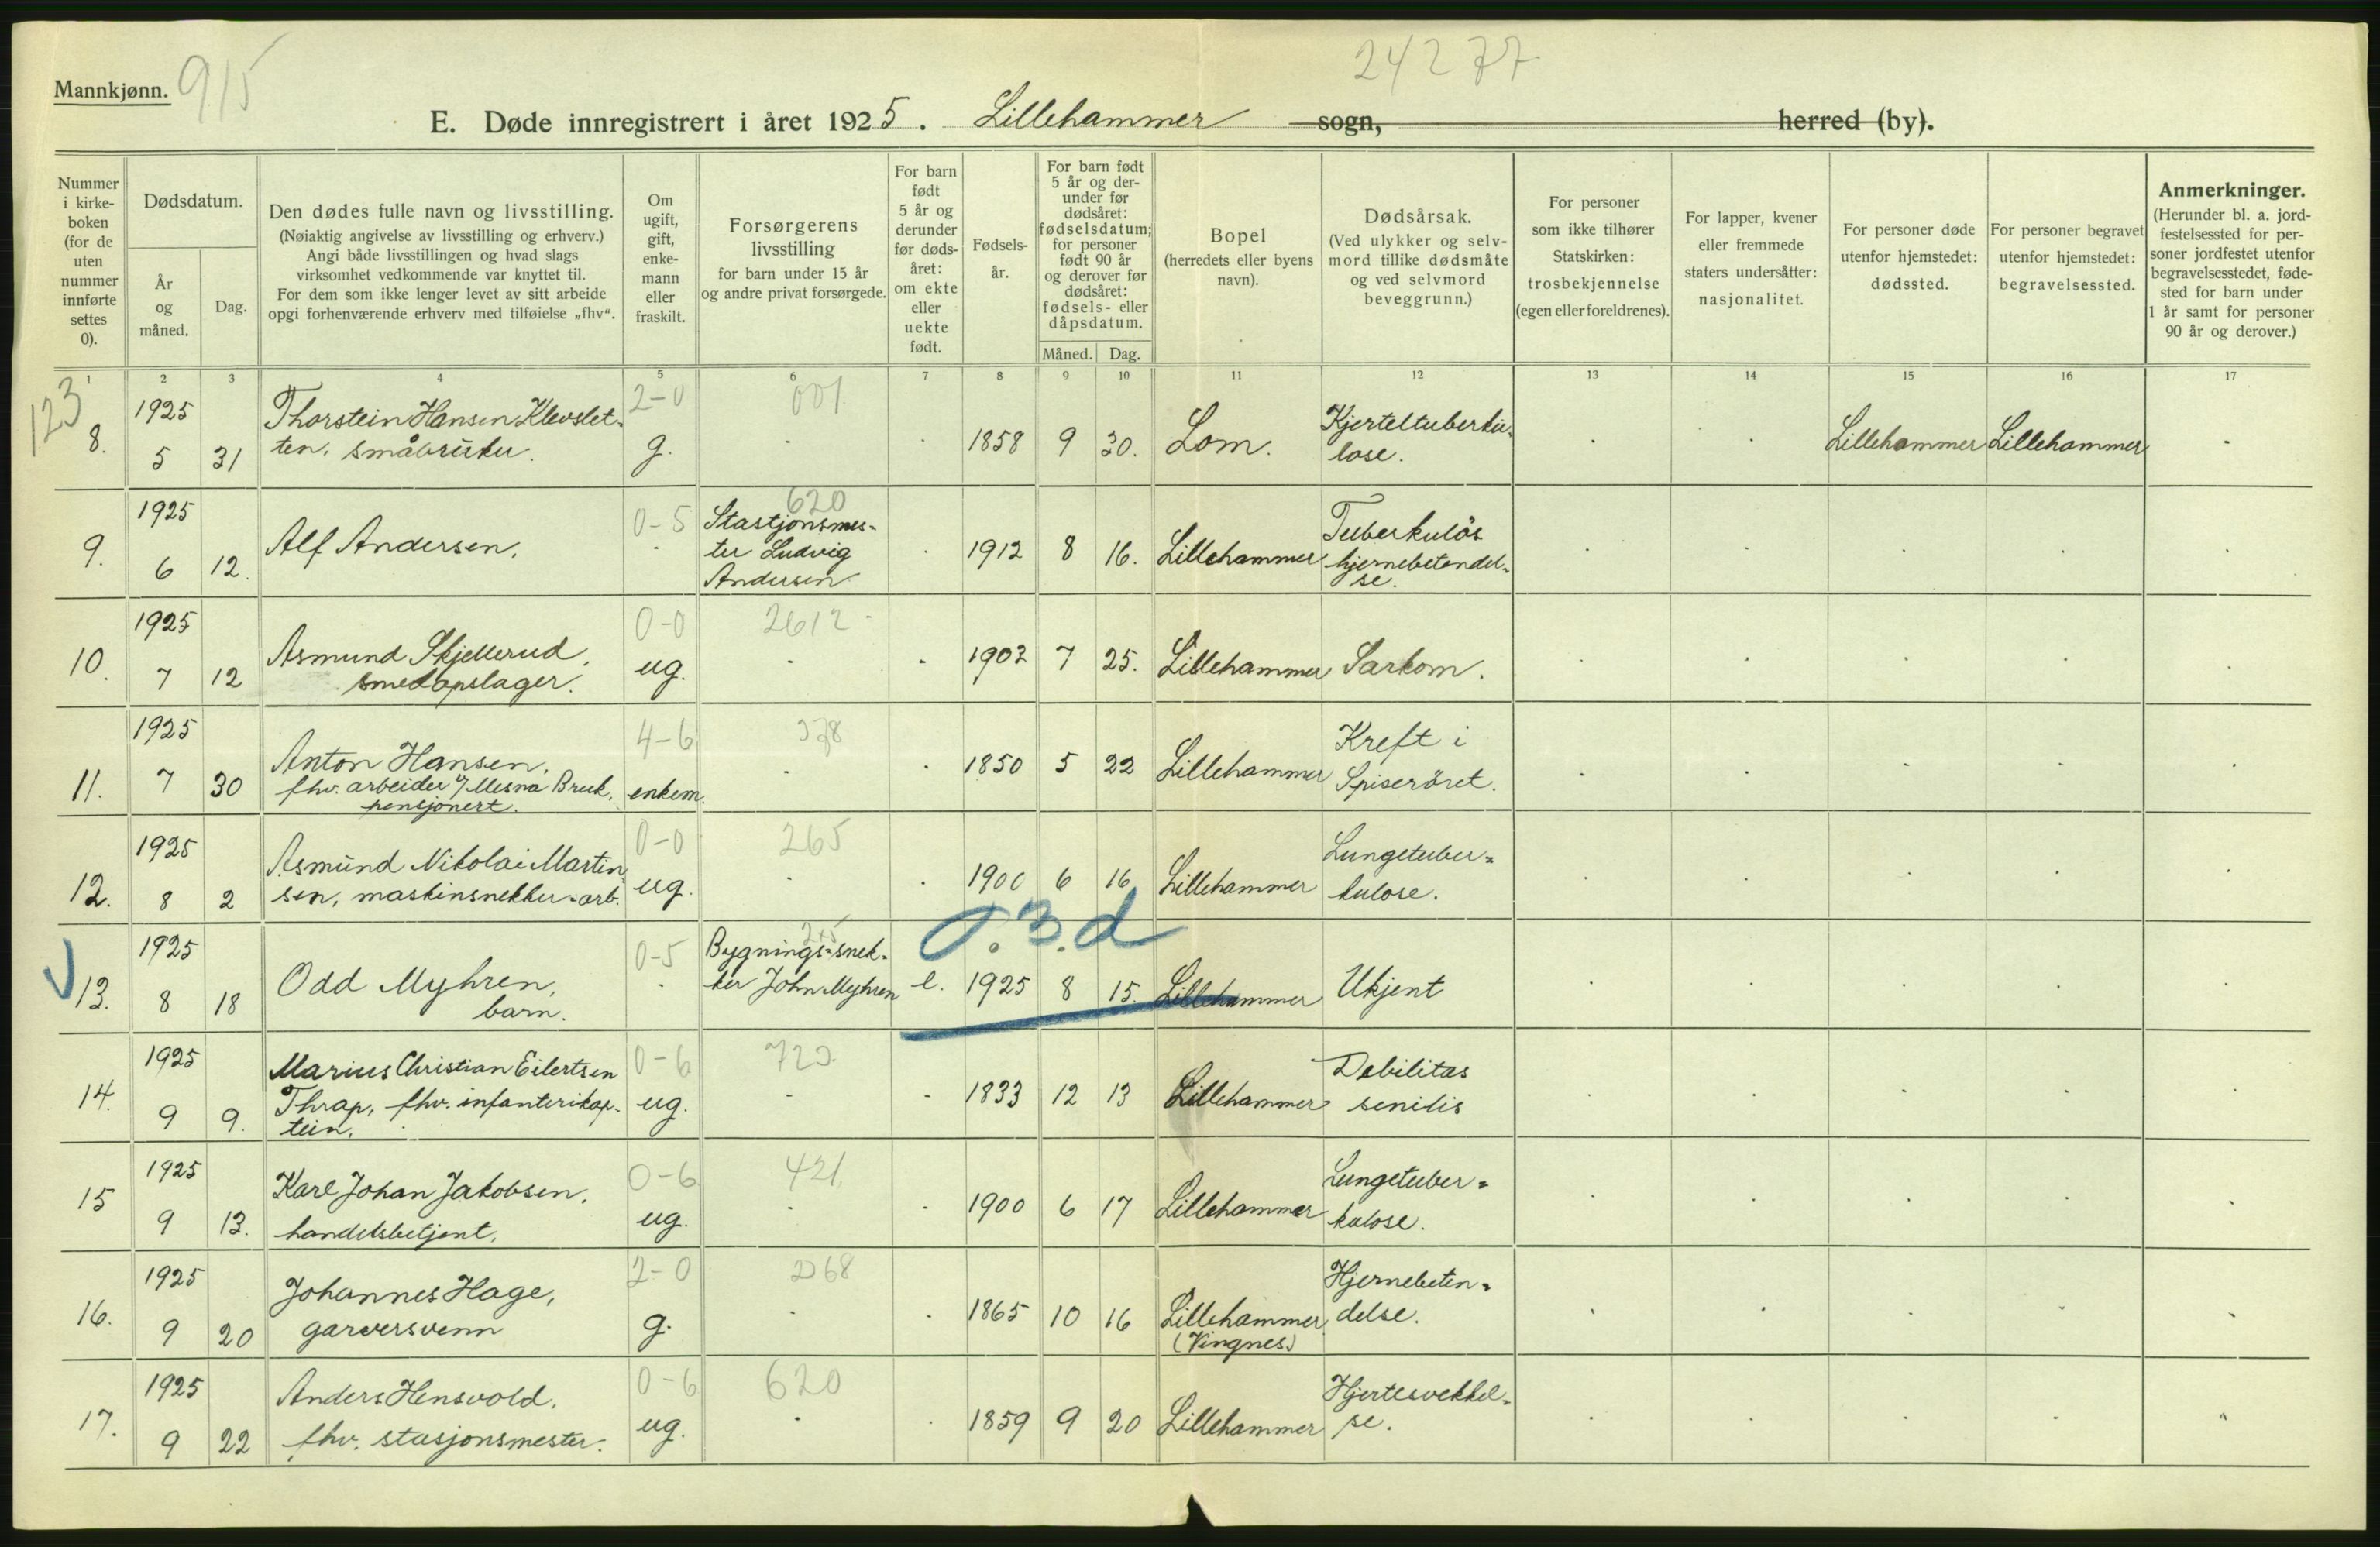 Mannkjønn.
915
24277
E. Døde innregistrert i året 1925. Lillehammer sogn, herred (by).
Nummer i kirkeboken (for de uten nummer innførte settes 0).
Dødsdatum.
År og måned.
Dag.
Den dødes fulle navn og livsstilling.
(Nøiaktig angivelse av livsstilling og erhverv.)
Angi både livsstillingen og hvad slags
virksomhet vedkommende var knyttet til.
For dem som ikke lenger levet av sitt arbeide
opgi forhenværende erhverv med tilføielse „fhv“.
Om ugift, gift, enkemann eller fraskilt.
Forsørgerens livsstilling
for barn under 15 år
og andre privat forsørgede.
For barn født 5 år og derunder før dødsåret: om ekte eller uekte født.
Fødselsår.
For barn født 5 år og derunder før dødsåret: fødselsdatum; for personer født 90 år og derover før dødsåret: fødsels- eller dåpsdatum.
Måned. Dag.
Bopel
(herredets eller byens navn).
Dødsårsak.
(Ved ulykker og selvmord tillike dødsmåte og ved selvmord beveggrunn.)
For personer som ikke tilhører Statskirken: trosbekjennelse (egen eller foreldrenes).
For lapper, kvener eller fremmede staters undersåtter: nasjonalitet.
For personer døde utenfor hjemstedet: dødssted.
For personer begravet utenfor hjemstedet: begravelsessted.
Anmerkninger.
(Herunder bl. a. jordfestelsessted for personer jordfestet utenfor begravelsesstedet, fødested for barn under 1 år samt for personer 90 år og derover.)
1 2 3 4 5 6 7 8 9 10 11 12 13 14 15 16 17
123
8. 1925 5 31 Thorstein Hansen Klevsletten, småbruker. 2-0 g. 001 1858 9 30. Lom. Kjerteltuberkulose. Lillehammer Lillehammer
9. 1925 6 12. Alf Andersen. 0-5 620 Stastjonsmester Ludvig Andersen 1912 8 16. Lillehammer Tuberkuløs hjernebetendelse.
10. 1925 7 12 Asmund Skjellerud, smedopslager. 0-0 ug. 2612 1902 7 25. Lillehammer Sarkom.
11. 1925 7 30 Anton Hansen, fhv. arbeider v/ Mesna Bruk, pensjonert. 4-6 enkem. 1850 5 22 Lillehammer Kreft i Spiserøret.
12. 1925 8 2 Asmund Nikolai Martinsen, maskinsnekker-arb. 0-0 ug. 265 1900 6 16 Lillehammer Lungetuberkulose.
13. 1925 8 18 Odd Myhren, barn. 0-5 Bygnings-snekker John Myhren e. 0.3.d 1925 8 15. Lillehammer Ukjent
14. 1925 9 9. Marius Christian Eilertsen Thrap, fhv. infanterikaptein. 0-6 ug. 1833 12 13 Lillehammer Debilitas senilis
15 1925 9 13. Karl Johan Jakobsen, handelsbetjent. 0-6 ug. 421 1900 6 17 Lillehammer Lungetuberkulose.
16. 1925 9 20 Johannes Hage, garversvenn 2-0 g. 268 1865 10 16 Lillehammer (Vingnes) Hjernebetendelse.
17. 1925 9 22 Anders Hensvold, fhv. stasjonsmester. 0-6 ug. 620 1859 9 20 Lillehammer Hjertesvekkelse.